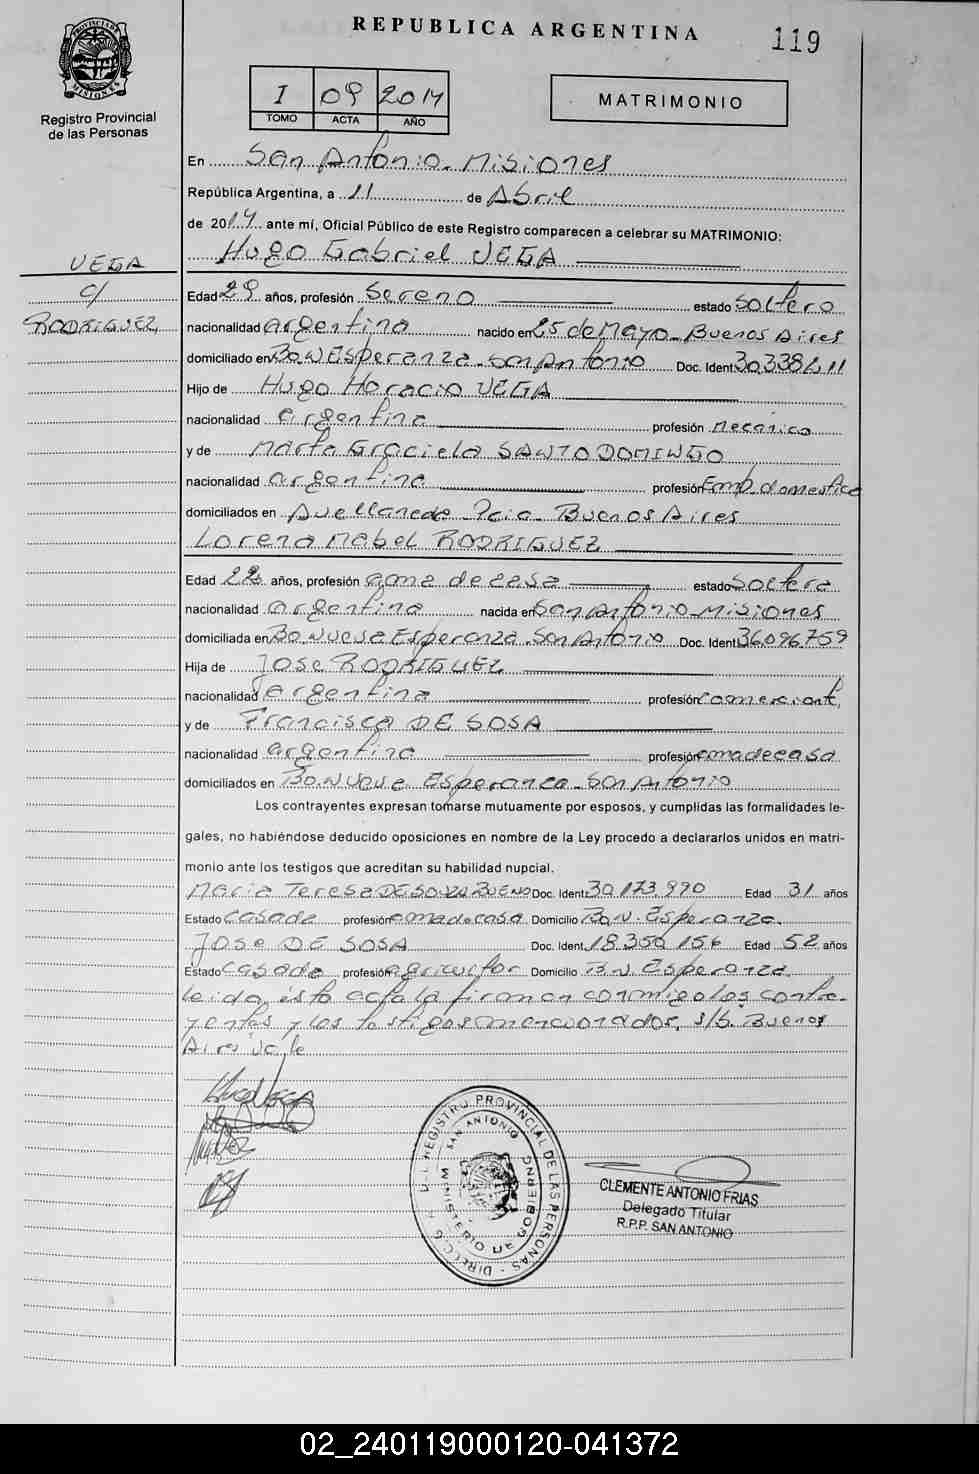 REPUBLICA ARGENTINA
119
Registro Provincial
de las Personas
I 09 2014
TOMO ACTA AÑO
MATRIMONIO
En San Antonio - Misiones
República Argentina, a 11 de Abril
de 2014 ante mí, Oficial Público de este Registro comparecen a celebrar su MATRIMONIO:
Hugo Gabriel VEGA
VEGA
c/
RODRIGUEZ
Edad 29 años, profesión Sereno estado Soltero
nacionalidad argentina nacido en 25 de Mayo - Buenos Aires
domiciliado en Bo N Esperanza - San Antonio Doc. Ident. 30.338.611
Hijo de Hugo Horacio VEGA
nacionalidad argentina profesión mecanico
y de Marta Graciela SANTO DOMINGO
nacionalidad argentina profesión Emp. domestica
domiciliados en Avellaneda - Pcia - Buenos Aires
Lorena Mabel RODRIGUEZ
Edad 22 años, profesión ama de casa estado Soltera
nacionalidad argentina nacida en San Antonio - Misiones
domiciliada en Bo Nueva Esperanza - San Antonio Doc. Ident. 36.096.759
Hija de Jose RODRIGUEZ
nacionalidad argentina profesión comerciante
y de Francisca DE SOSA
nacionalidad argentina profesión ama de casa
domiciliados en Bo. Nueva Esperanza - San Antonio
Los contrayentes expresan tomarse mutuamente por esposos, y cumplidas las formalidades le-
gales, no habiéndose deducido oposiciones en nombre de la Ley procedo a declararlos unidos en matri-
monio ante los testigos que acreditan su habilidad nupcial.
Maria Teresa DE SOUZA BUENO Doc. Ident. 30.173.990 Edad 31 años
Estado casada profesión ama de casa Domicilio Bo N. Esperanza
Jose DE SOSA Doc. Ident. 18.350.156 Edad 52 años
Estado casado profesión agricultor Domicilio B. N. Esperanza
Leida ésta acta la firman conmigo los contra-
yentes y los testigos mencionados, s/b. Buenos
Aires Vale
Hugo VEGA
REGISTRO PROVINCIAL DE LAS PERSONAS - DIRECC. G.
SAN ANTONIO
MINISTERIO DE GOBIERNO
CLEMENTE ANTONIO FRIAS
Delegado Titular
R.P.P. SAN ANTONIO
02_240119000120-041372